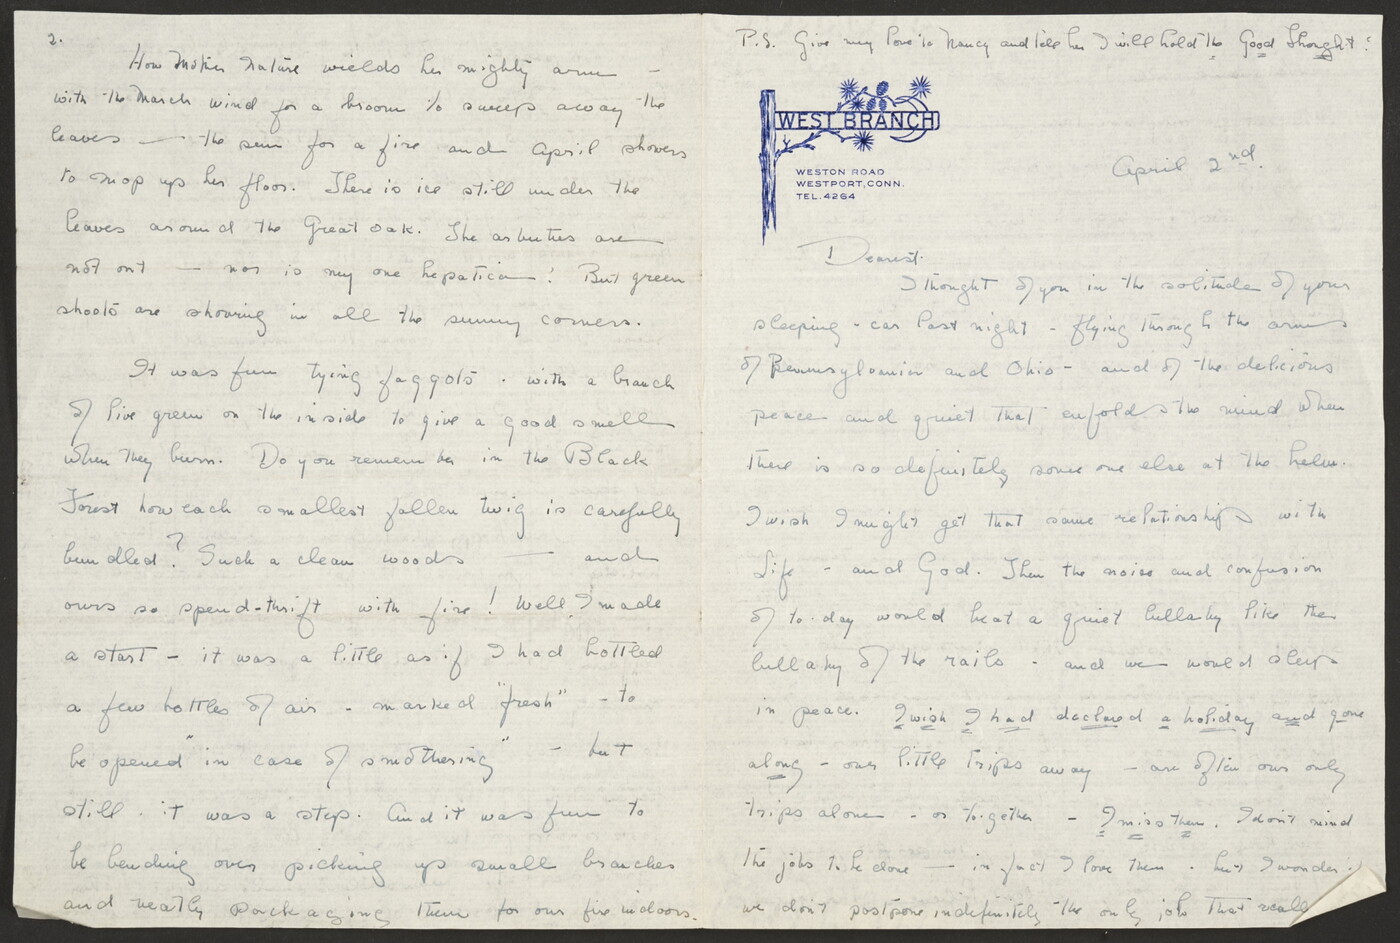 P.S. Give my love to Nancy and tell her I will hold the Good Thought!
WEST BRANCH
WESTON ROAD
WESTPORT, CONN.
TEL. 4264
April 2nd.
Dearest.
I thought of you in the solitude of your
sleeping-car last night - flying through the arms
of Pennsylvania and Ohio - and of the delicious
peace and quiet that enfolds the mind when
there is so definitely some one else at the helm.
I wish I might get that same relationship with
Life - and God. Then the noise and confusion
of to-day would beat a quiet lullaby like the
lullaby of the rails - and we would sleep
in peace. I wish I had declared a holiday and gone
along - our little trips away - are often our only
trips alone - or together - I miss them. I don't mind
the jobs to be done — in fact I love them - but I wonder if
we don't postpone indefinitely the only job that reall
2.
How Mother Nature wields her mighty arm -
with the March wind for a broom to sweep away the
leaves — the sun for a fire and April showers
to mop up her floor. There is ice still under the
leaves around the Great oak. The arbutus are
not out - nor is my one hepatica! But green
shoots are shoving in all the sunny corners.
It was fun tying faggots - with a branch
of live green on the inside to give a good smell
when they burn. Do you remember in the Black
Forest how each smallest fallen twig is carefully
bundled? Such a clean woods — and
ours so spend-thrift with fire! Well I made
a start - it was a little as if I had bottled
a few bottles of air - marked "fresh" - to
be opened "in case of smothering" - but
still - it was a step. And it was fun to
be bending over picking up small branches
and neatly packaging them for our fire indoors.